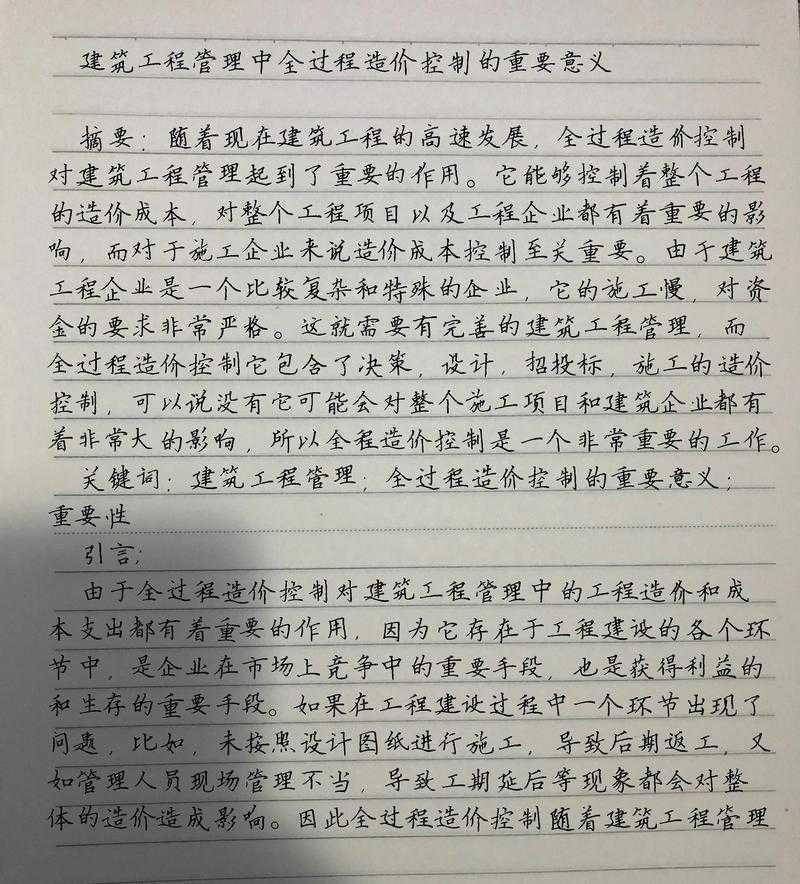 建筑工程管理中全过程造价控制的重要意义
摘要：随着现在建筑工程的高速发展，全过程造价控制
对建筑工程管理起到了重要的作用。它能够控制着整个工程
的造价成本，对整个工程项目以及工程企业都有着重要的影
响，而对于施工企业来说造价成本控制至关重要。由于建筑
工程企业是一个比较复杂和特殊的企业，它的施工慢，对资
金的要求非常严格。这就需要有完善的建筑工程管理，而
全过程造价控制它包含了决策，设计，招投标，施工的造价
控制，可以说没有它可能会对整个施工项目和建筑企业都有
着非常大的影响，所以全程造价控制是一个非常重要的工作。
关键词：建筑工程管理；全过程造价控制的重要意义；
重要性
引言；
由于全过程造价控制对建筑工程管理中的工程造价和成
本支出都有着重要的作用，因为它存在于工程建设的各个环
节中，是企业在市场上竞争中的重要手段，也是获得利益的
和生存的重要手段。如果在工程建设过程中一个环节出现了
问题，比如，未按照设计图纸进行施工，导致后期返工，又
如管理人员现场管理不当，导致工期延后等现象都会对整
体的造价造成影响。因此全过程造价控制随着建筑工程管理